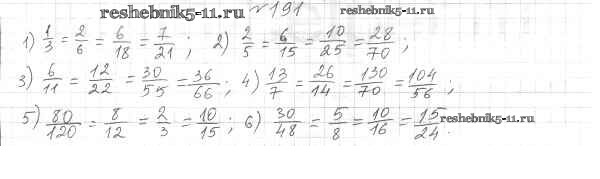 reshebnik5-11.ru № 191 reshebnik5-11.ru
1) 1/3 = 2/6 = 6/18 = 7/21 ; 2) 2/5 = 6/15 = 10/25 = 28/70 ;
3) 6/11 = 12/22 = 30/55 = 36/66 ; 4) 13/7 = 26/14 = 130/70 = 104/56 ;
5) 80/120 = 8/12 = 2/3 = 10/15 ; 6) 30/48 = 5/8 = 10/16 = 15/24 . reshebnik5-11.ru